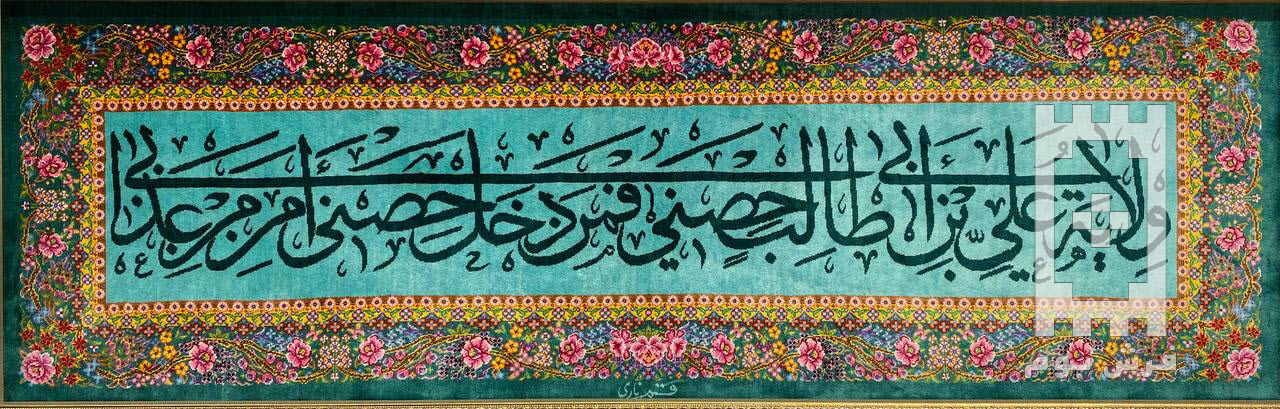 ولایة علي بن أبي طالب حصني فمن دخل حصني أمن من عذابي
فرش موم